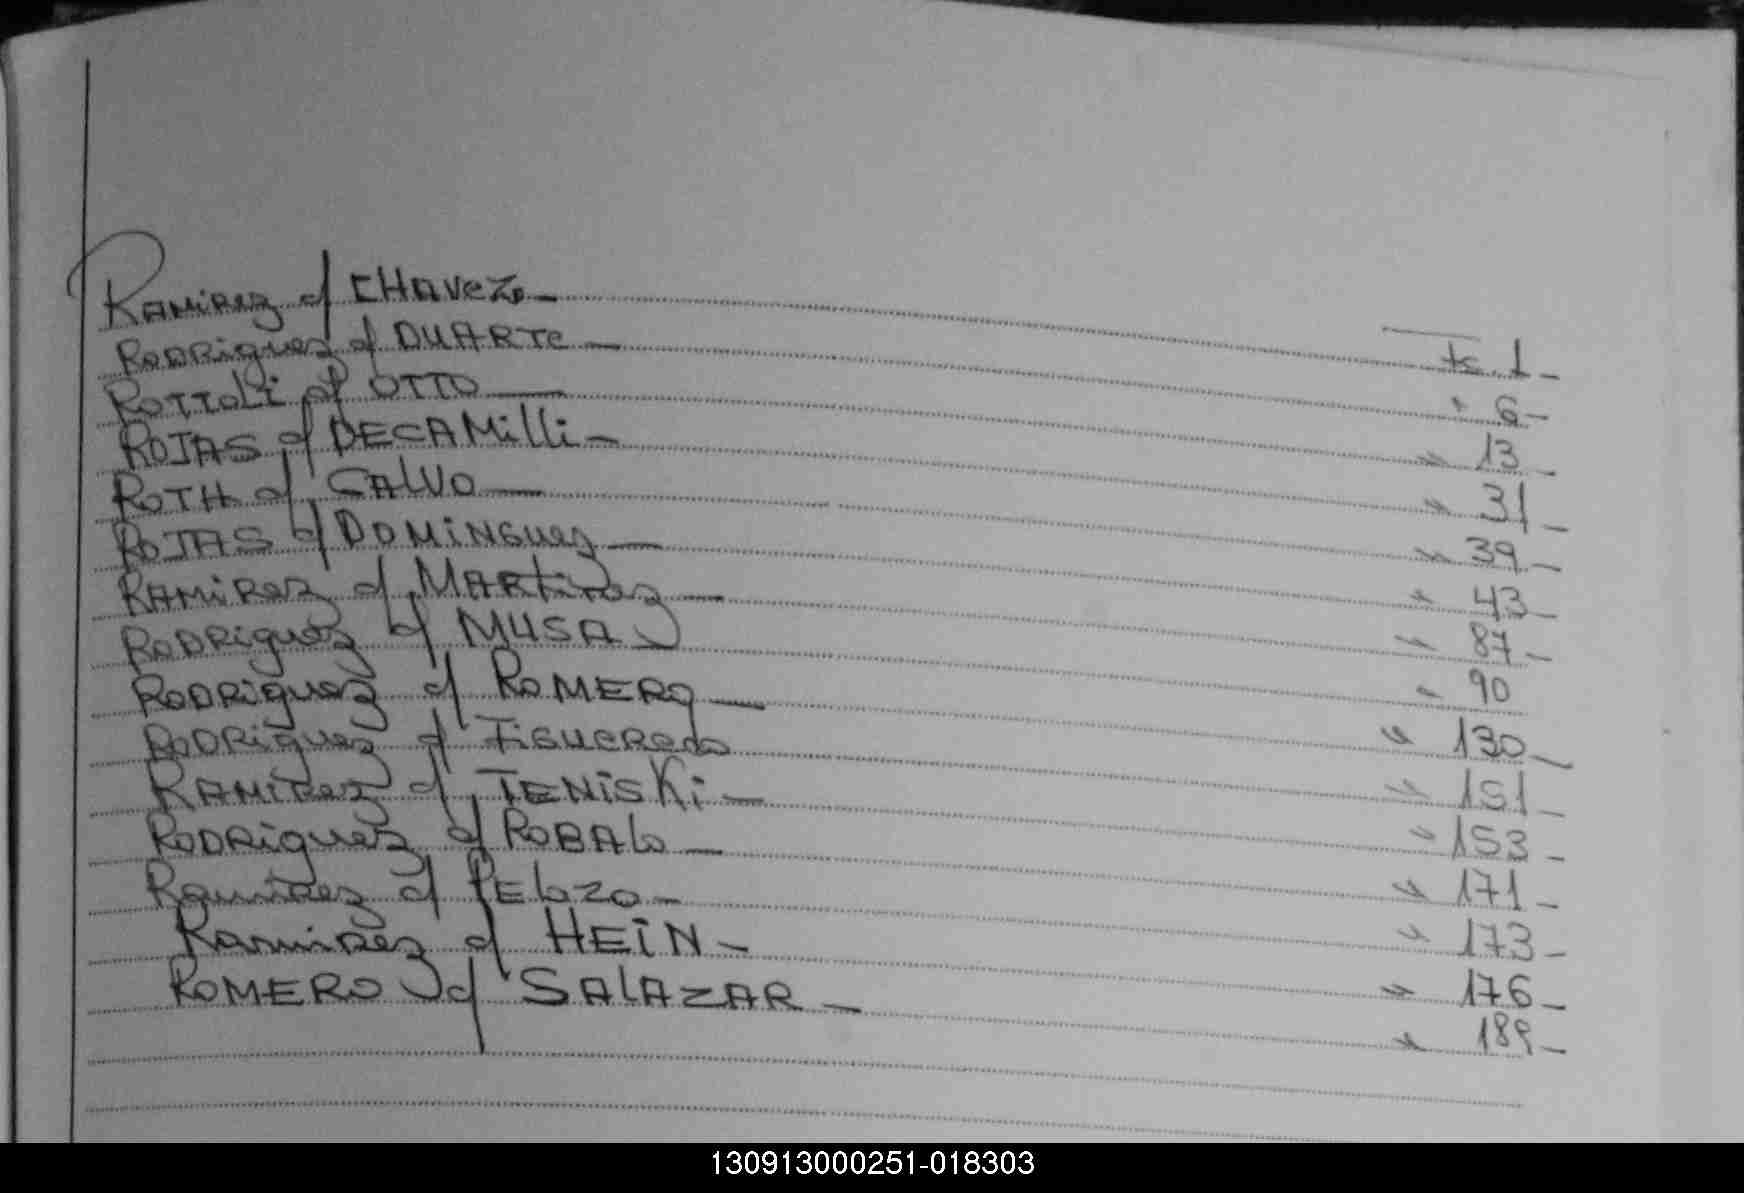 Ramirez c/ CHavez - Fs. 1 -
RODRiguez c/ DUARTE - " 6 -
ROTTOLi c/ OTTO - " 13 -
ROJAS c/ DECAMilli - " 31 -
ROTH c/ CALVO - " 39 -
ROJAS c/ DOMiNGuez - " 43 -
RAMiRez c/ MARTinez - " 87 -
RODRiguez c/ MUSA " 90
RODRiguez c/ ROMERO - " 130 -
RODRiguez c/ FiGUEREdo " 151 -
RAMiRez c/ TENiSKi - " 153 -
RODRiguez c/ ROBALO - " 171 -
Ramirez c/ PELOZO - " 173 -
Ramirez c/ HEiN - " 176 -
ROMERO c/ SALAZAR - " 189 -
130913000251-018303